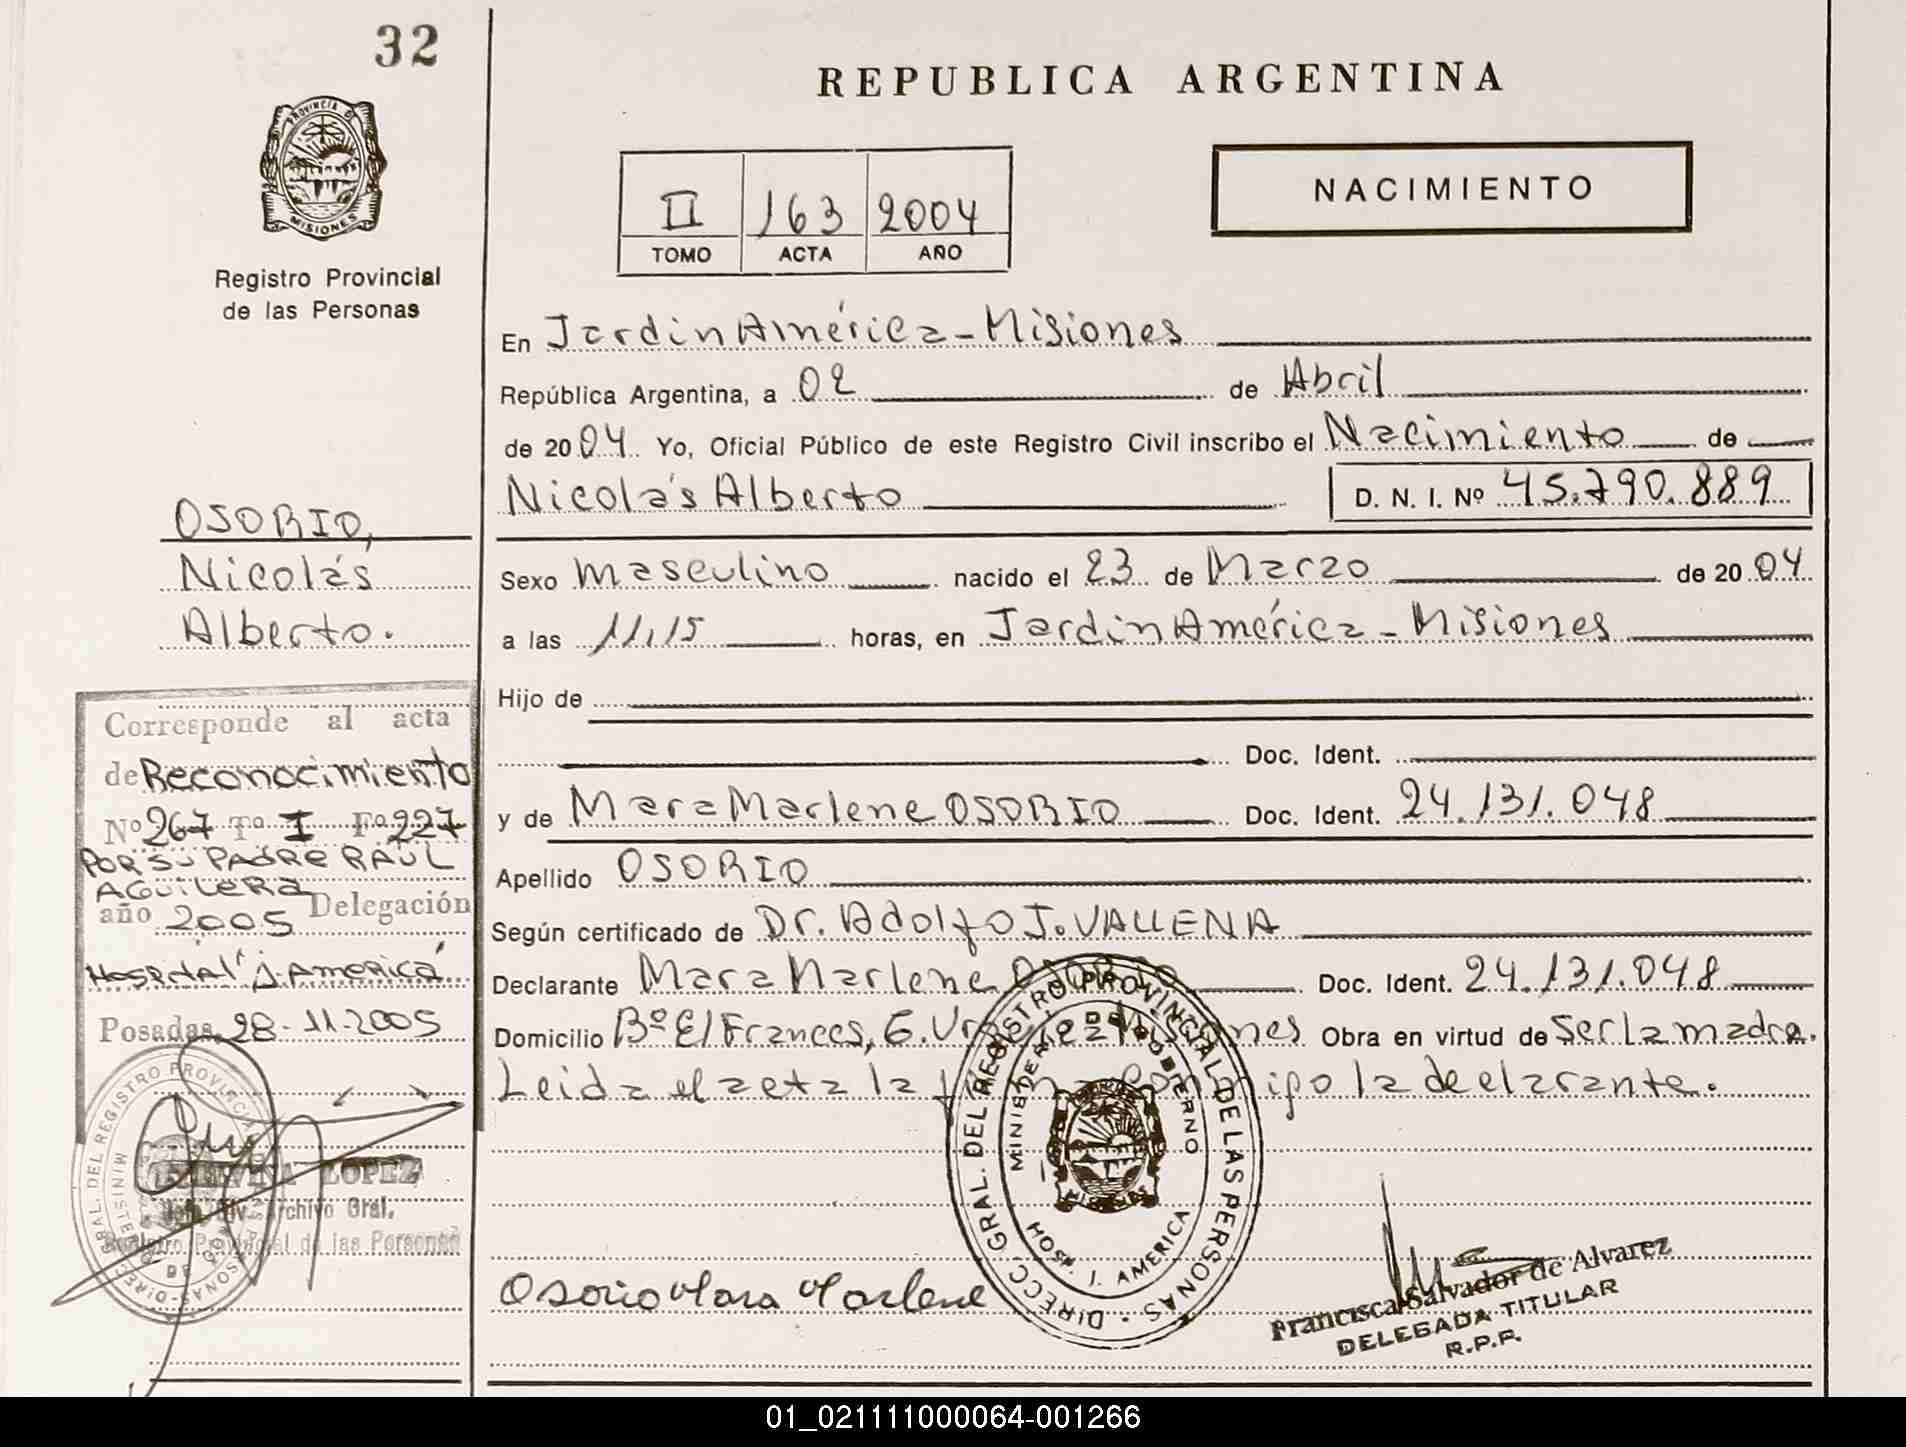 32
PROVINCIA DE
MISIONES
Registro Provincial
de las Personas
OSORIO,
Nicolás
Alberto.
Corresponde al acta
de Reconocimiento
Nº 267 Tº I Fº 227
POR SU PADRE RAUL
AGUILERA
año 2005 Delegación
Hospital "J. America"
Posadas, 28-11-2005
DIREC. GRAL. DEL REGISTRO PROVINCIAL
LOPEZ
Archivo Gral.
Registro Provincial de las Personas
REPUBLICA ARGENTINA
II 163 2004
TOMO ACTA AÑO
NACIMIENTO
En Jardin América - Misiones
República Argentina, a 02 de Abril
de 2004 Yo, Oficial Público de este Registro Civil inscribo el Nacimiento de
Nicolás Alberto D. N. I. Nº 45.790.889
Sexo masculino nacido el 23 de Marzo de 2004
a las 11,15 horas, en Jardin América - Misiones
Hijo de
Doc. Ident.
y de Mara Marlene OSORIO Doc. Ident. 24.131.048
Apellido OSORIO
Según certificado de Dr. Adolfo J. VALLENA
Declarante Mara Marlene OSORIO Doc. Ident. 24.131.048
Domicilio Bº El Frances, G. Urquiza Misiones Obra en virtud de ser la madre.
Leida el acta la firma conmigo la declarante.
DIRECC GRAL. DEL REGISTRO PROVINCIAL DE LAS PERSONAS
MINISTERIO DE GOBIERNO
HOSP. J. AMERICA
MISIONES
Osorio Mara Marlene
Francisca Salvador de Alvarez
DELEGADA TITULAR
R.P.P.
01_021111000064-001266